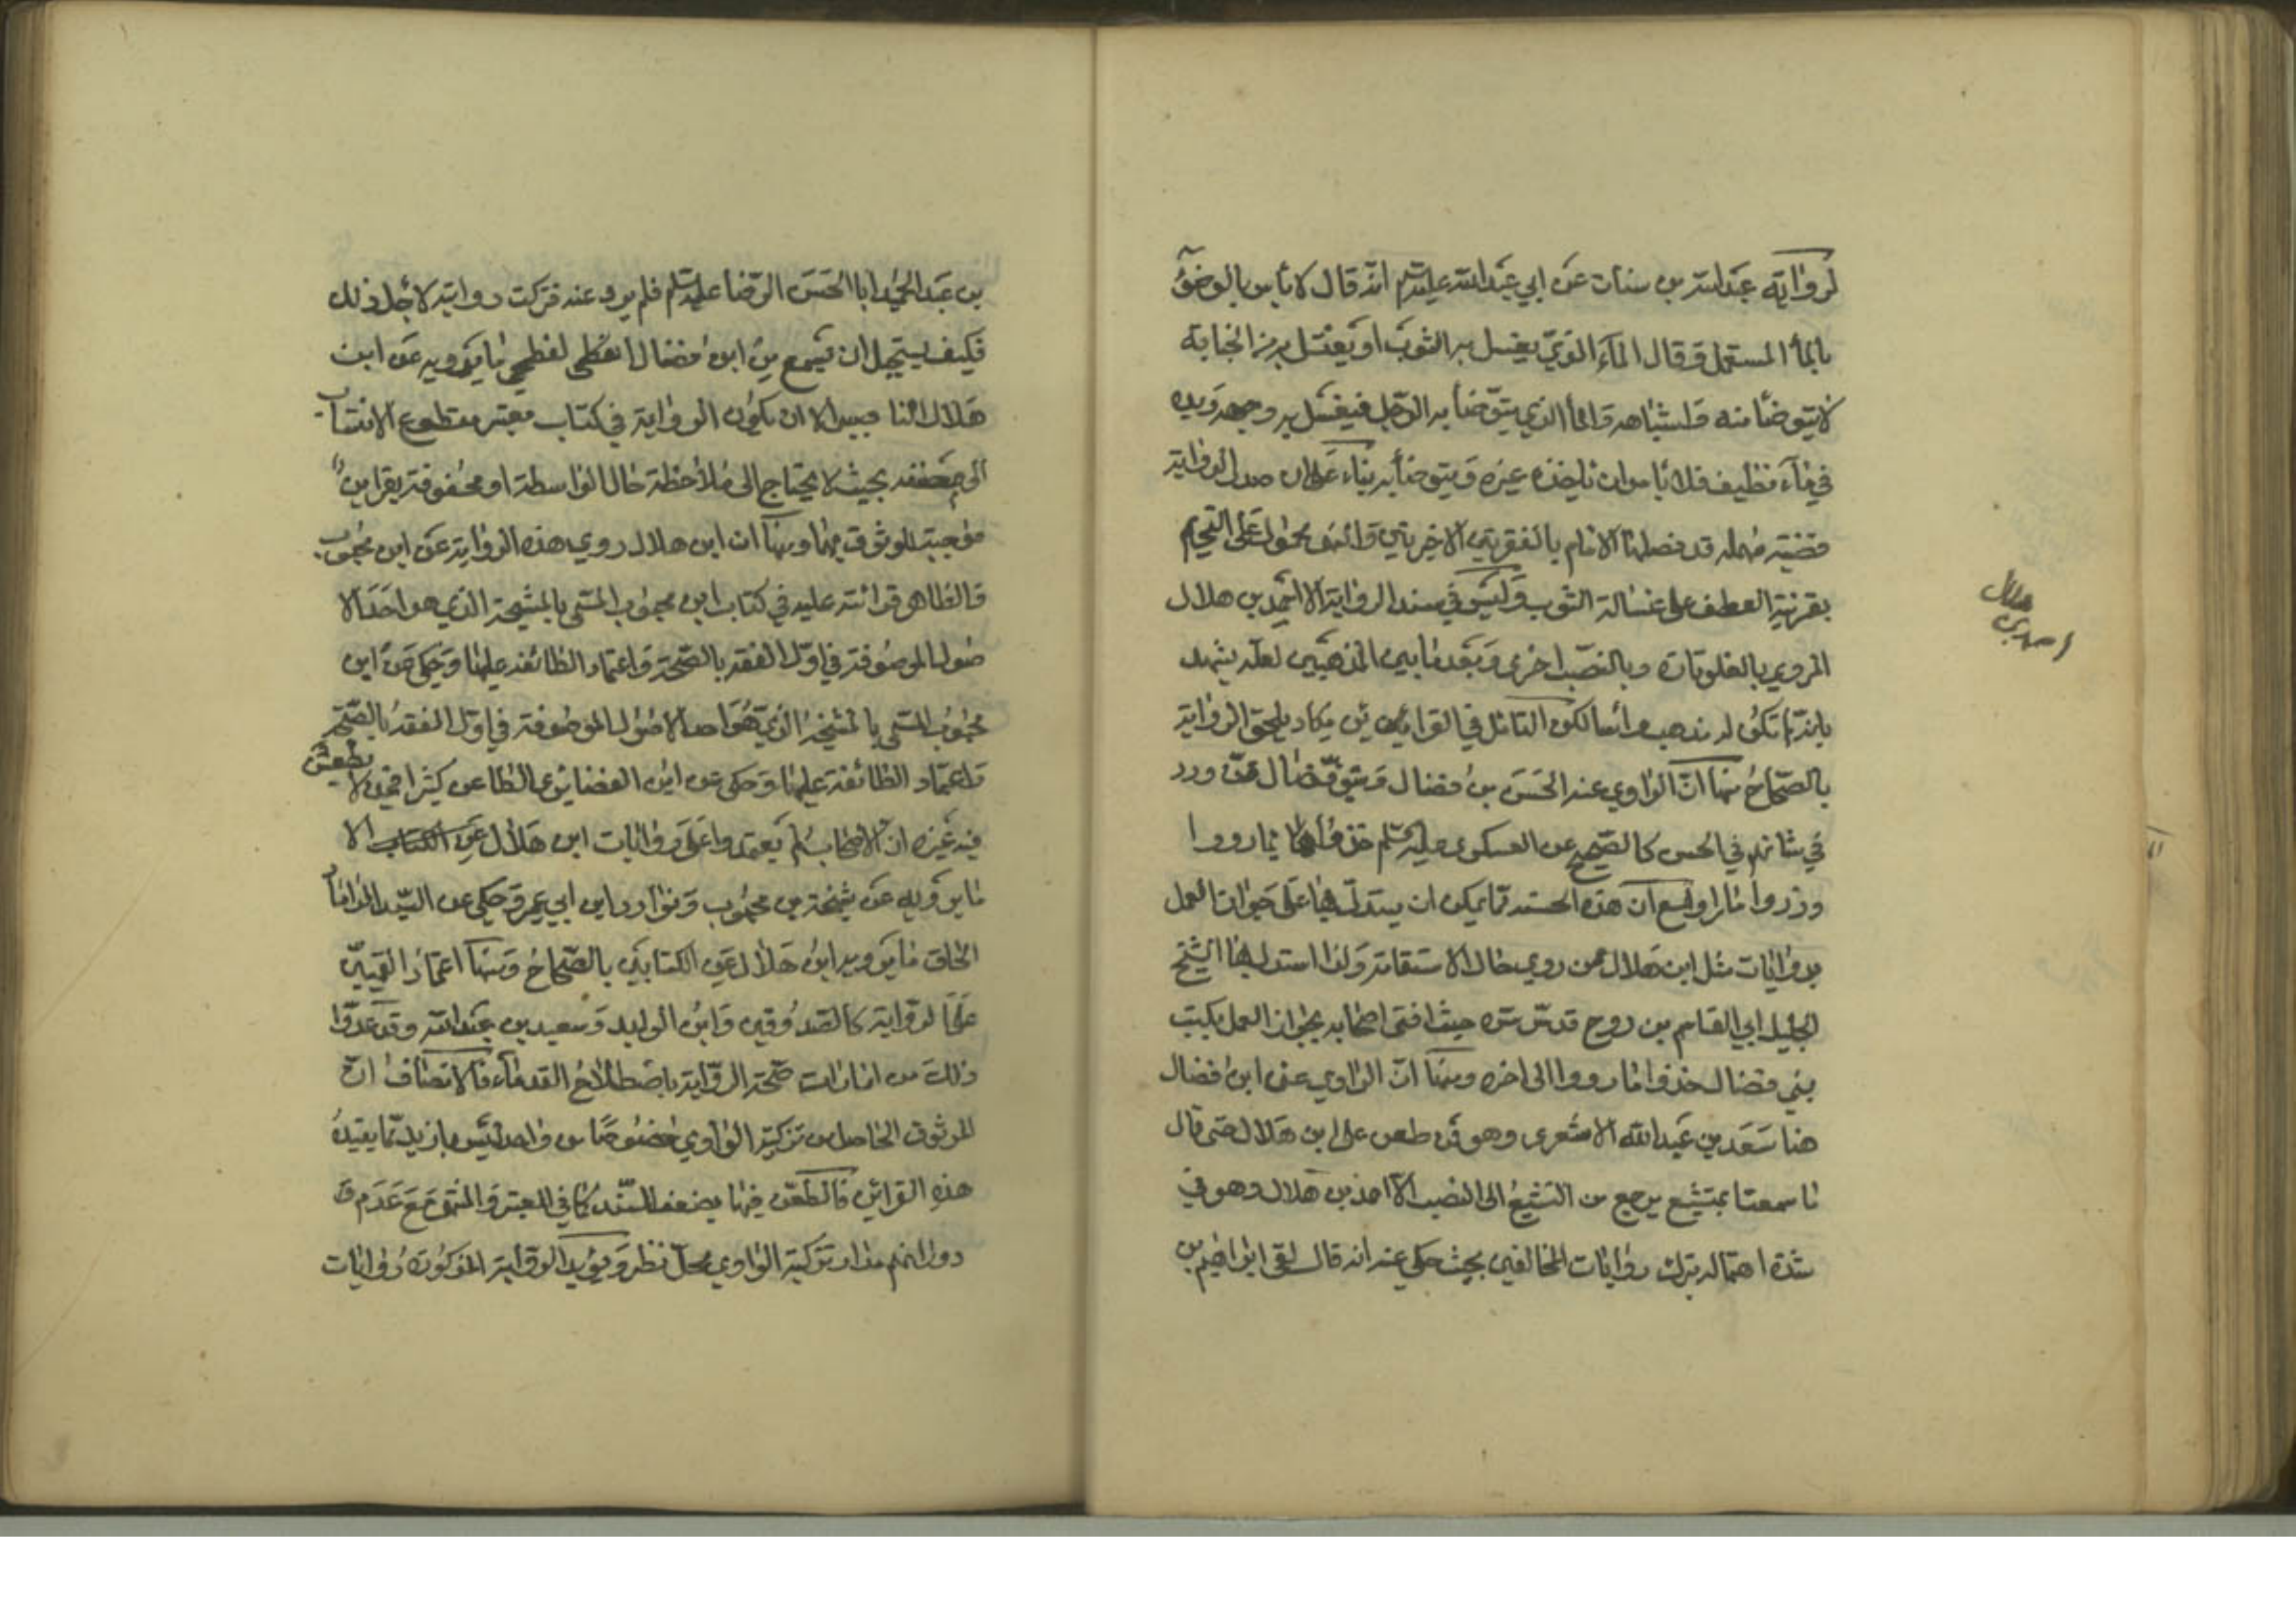 لرواية عبدالله بن سنان عن ابي عبدالله عليه السلم انه قال لا باس بالوضوء
بالماء المستعمل وقال الماء الذي يغسل به الثوب او يغتسل به من الجنابة
لا يتوضأ منه واشباهه واما الذي يتوضأ به الرجل فيغسل به وجهه ويده
في ماء نظيف فلا باس ان ياخذه غيره ويتوضأ به بناء على ان صدر الرواية
قضية مهملة قد فصلها الامام بالفقرتين الاخيرتين وانهى محمول على التحريم
بقرنية العطف على غسالة الثوب وليس في سند الرواية الا احمد بن هلال
المروي بالغلو تارة وبالنصب اخرى وبعد ما بين المذهبين لعله يشهد
بانه لم تكن له مذهب راسا لكن التامل في القراين يكاد يلحق الرواية
بالصحاح منها ان الراوي عنه الحسن بن فضال وبنو فضال ممن ورد
في شانهم في الحسن كالصحيح عن العسكري عليه السلم خذوا بما رووا
وذروا ما راوا مع ان هذه الحسنه مما يمكن ان يستدل بها على جواز العمل
بروايات مثل ابن هلال ممن روي حال الاستقامة ولذا استدل بها الشيخ
الجليل ابي القاسم بن روح قدس سره حيث افتى اصحابه بجواز العمل بكتب
بني فضال خذوا ما رووا الى اخره ومنها ان الراوي عن ابن فضال
هنا سعد بن عبدالله الاشعري وهو ممن طعن على ابن هلال حتى قال
ما سمعنا بمتشيع يرجع من التشيع الى النصب الا احمد بن هلال وهو في
شدة اهتماله بترك روايات المخالفين بحيث حكي عنه انه قال لقي ابراهيم بن
احمد بن
هلال
بن عبد الحميد ابا الحسن الرضا عليه السلم فلم يرو عنه فتركت روايته لاجل ذلك
فكيف يستجيل ان يسمع من ابن فضال الفطحي لفطحي ما يرويه عن ابن
هلال الناصبي الا ان يكون الرواية في كتاب معتبر مقطوع الانتساب
الى مصنفه بحيث لا يحتاج الى ملاحظة حال الواسطة او محفوفة بقراين
موجبة للوثوق بها ومنها ان ابن هلال روي هذه الرواية عن ابن محبوب
والظاهر قرائته عليه في كتاب ابن محبوب المسمى بالمشيخة الذي هو احد الا
صول الموصوفة في اول الفقه بالصحة واعتماد الطائفة عليها وحكي عن ابن
محبوب المسمى بالمشيخة الذي هو احد الاصول الموصوفة في اول الفقه بالصحة
واعتماد الطائفة عليها وحكي عن ابن الغضايري الطاعن كثيرا فيمن لا يطعن
فيه غيره ان الاصحاب لم يعتمدوا على روايات ابن هلال عن الكتاب الا
ما يرويه عن مشيخة بن محبوب ونوادر ابن ابي عمير وحكي عن السيد الداماد
الحاق ما يرويه ابن هلال عن الكتابين بالصحاح ومنها اعتماد القميين
على الرواية كالصدوقين وابن الوليد وسعيد بن عبدالله وقد عدوا
ذلك من امارات صحة الرواية باصطلاح القدماء فالانصاف ان
الوثوق الحاصل من تزكية الراوي خصوصا من واحد ليس بازيد مما يفيده
هذه القرائن فالطعن فيها بضعف السند كما في المعتبر والمنتهى مع عدم
دورانهم مدار تزكية الراوي محل نظر ويؤيد الرواية المذكورة روايات